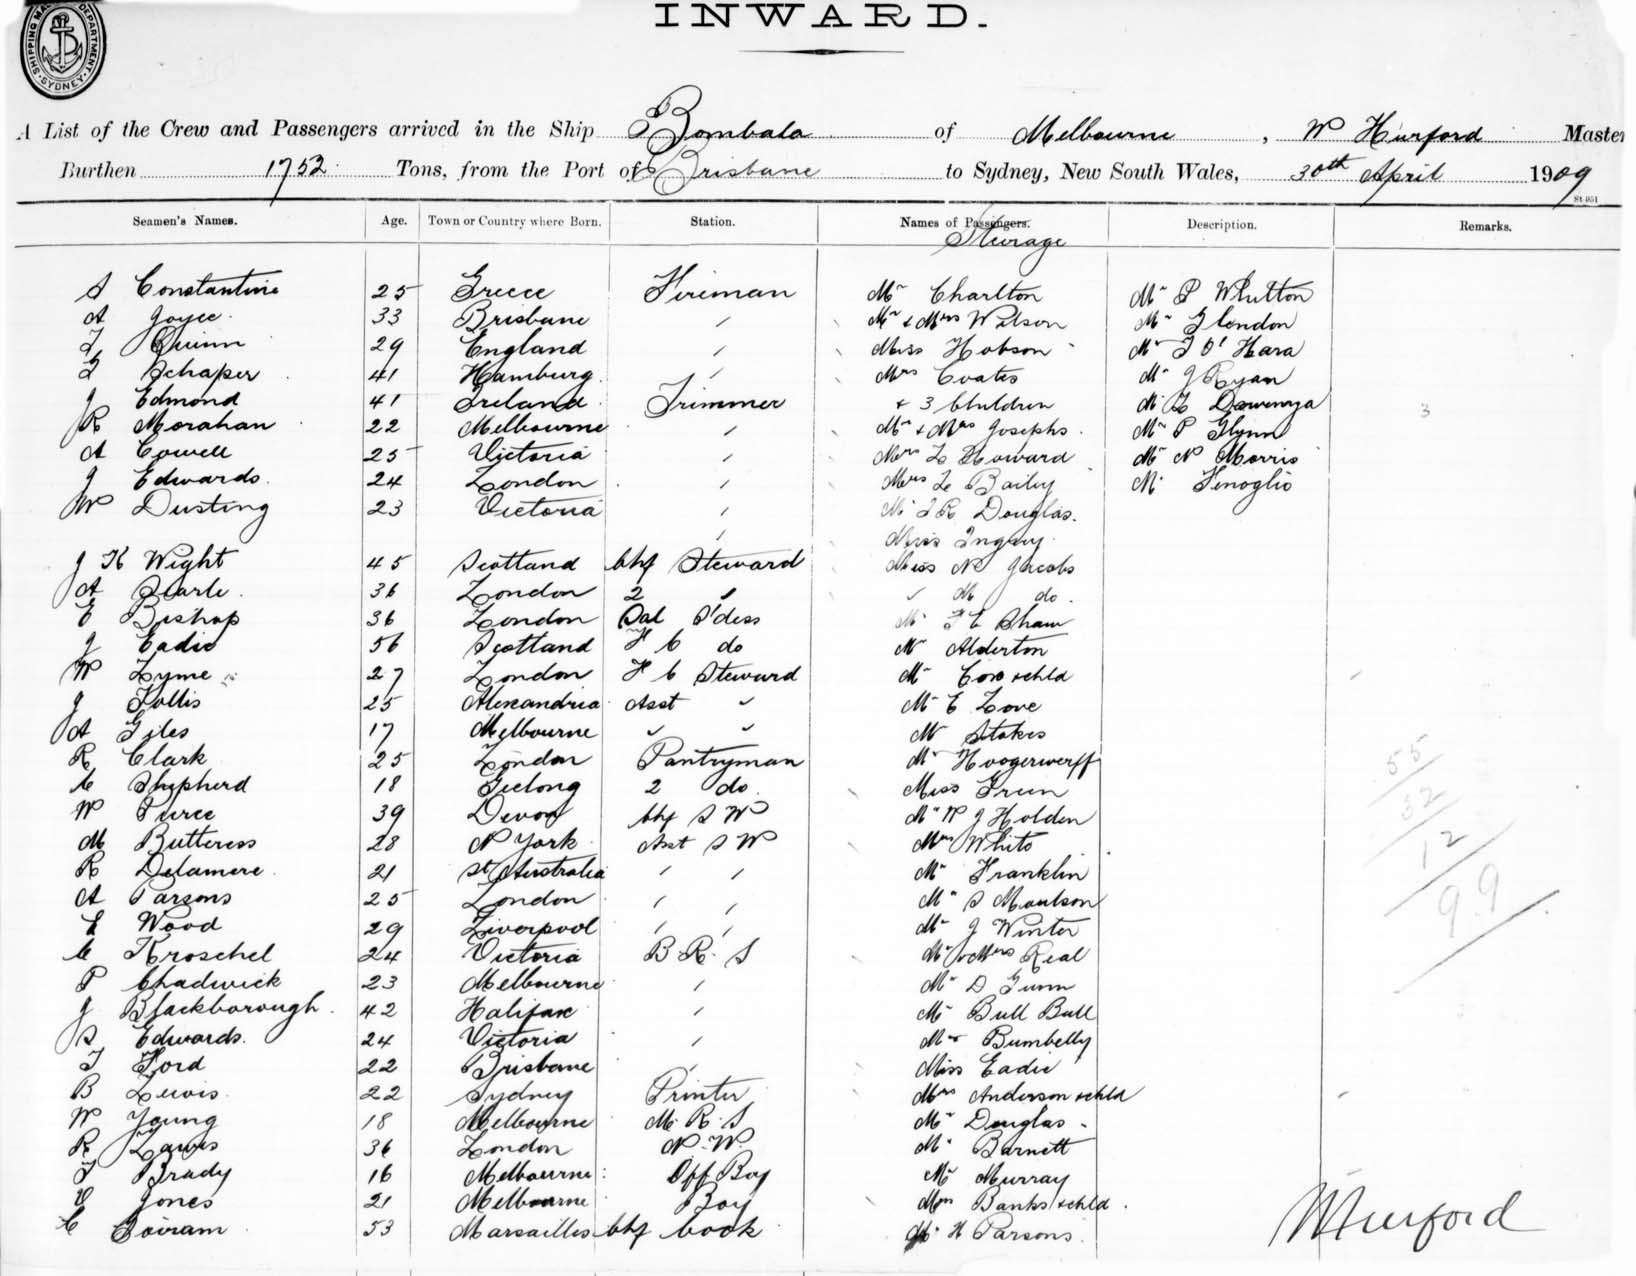 SHIPPING MASTER'S DEPARTMENT
SYDNEY
INWARD.
A List of the Crew and Passengers arrived in the Ship Bombala of Melbourne, W Hurford Master
Burthen 1752 Tons, from the Port of Brisbane to Sydney, New South Wales, 30th April 1909
St 951
Seamen's Names. Age. Town or Country where Born. Station. Names of Passengers. Description. Remarks.
Steerage
S Constantine 25 Greece Fireman Mr Charlton Mr P Whitton
A Joyce 33 Brisbane " Mr & Mrs Watson Mr Glendon
Quinn 29 England " Miss Hobson Mr T O'Hara
Schaper 41 Hamburg " Mrs Coates Mr J Ryan
J Edmond 41 Ireland Trimmer & 3 Children Mr 3
R Morahan 22 Melbourne " Mr & Mrs Josephs Mr P Glynn
A Cowell 25 Victoria " Mrs L Howard Mr N Morris
J Edwards 24 London " Mrs Le Baily Mr Fenoglio
W Dusting 23 Victoria " Mr Douglas.
" Miss
J K Wight 45 Scotland Chf Steward Miss N Jacobs
A Searle 36 London 2 " " M do.
E Bishop 36 London Sal S'dess Mr Shaw
J Eadie 56 Scotland F C do Mr Alderton
W Lyme 27 London F C Steward Mr Cox & chld
J Follis 25 Alexandria Asst " Mr E Love
A Giles 17 Melbourne " " Mr Stokes
R Clark 25 London Pantryman Mr Hoogerwerff
C Shepherd 18 Geelong 2 do. Miss Green
W Pierce 39 Devon Chf S W Mr W J Holden
M Buttress 28 N York Asst S W Mrs White
R Delamere 21 Sth Australia " " Mr Franklin
A Parsons 25 London " " Mr S Moulson
Wood 29 Liverpool " " Mr J Winter
C Kroschel 24 Victoria B.R.S Mr & Mrs Real
P Chadwick 23 Melbourne " Mr D Gunn
J Blackborough 42 Halifax " Mr Bull Bull
S Edwards 24 Victoria " Mr Bumbelly
T Ford 22 Brisbane " Miss Eadie
B Lewis 22 Sydney Printer Mrs Anderson & chld
W Young 18 Melbourne M.R.S Mr Douglas
R Laws 36 London N.W. Mr Barnett
T Brady 16 Melbourne Off Boy Mr Murray
Jones 21 Melbourne Boy Mrs Banks & chld.
C 53 Marsailles Chf Cook Mr H Parsons.
55
32
12
99
W Hurford